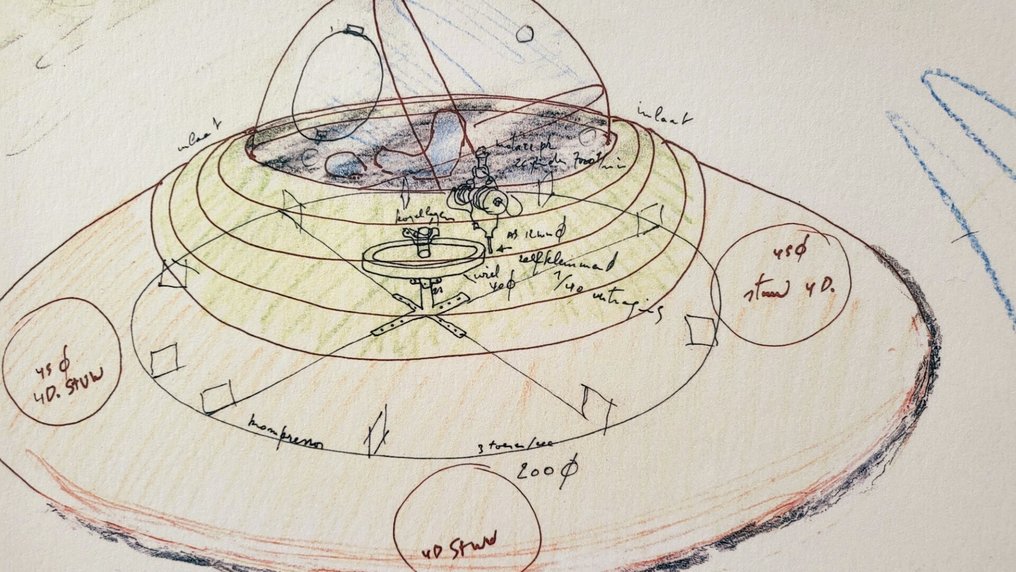 inlaat
inlaat
kogellager
AS 12mm ϕ
zelfklemmend
wiel
40ϕ
1/40 vertraging
45ϕ
stuw 4D.
45ϕ
4D. STUW
kompressor
3 toeren/sec
200ϕ
4D STUW